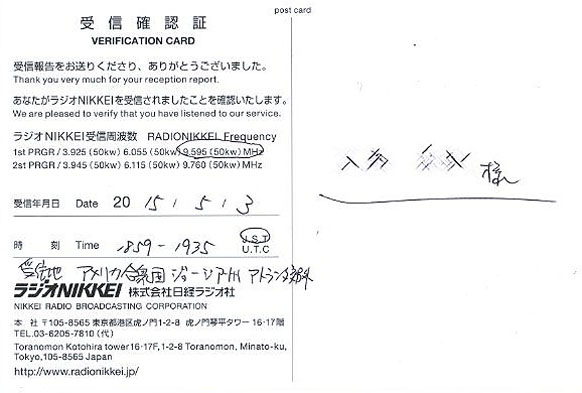 post card
受信確認証
VERIFICATION CARD
受信報告をお送りくださり、ありがとうございました。
Thank you very much for your reception report.
あなたがラジオNIKKEIを受信されましたことを確認いたします。
We are pleased to verify that you have listened to our service.
ラジオNIKKEI受信周波数 RADIONIKKEI Frequency
1st PRGR / 3.925 (50kw) 6.055 (50kw) 9.595 (50kw) MHz
2st PRGR / 3.945 (50kw) 6.115 (50kw) 9.760 (50kw) MHz
受信年月日 Date 20 15 / 5 / 3
時 刻 Time 1859 - 1935 J.S.T U.T.C
受信地 アメリカ合衆国 ジョージア州 アトランタ郊外
ラジオNIKKEI 株式会社日経ラジオ社
NIKKEI RADIO BROADCASTING CORPORATION
本 社 〒105-8565 東京都港区虎ノ門1-2-8 虎ノ門琴平タワー 16・17階
TEL.03-6205-7810 (代)
Toranomon Kotohira tower 16・17F, 1-2-8 Toranomon, Minato-ku,
Tokyo, 105-8565 Japan
http://www.radionikkei.jp/
様